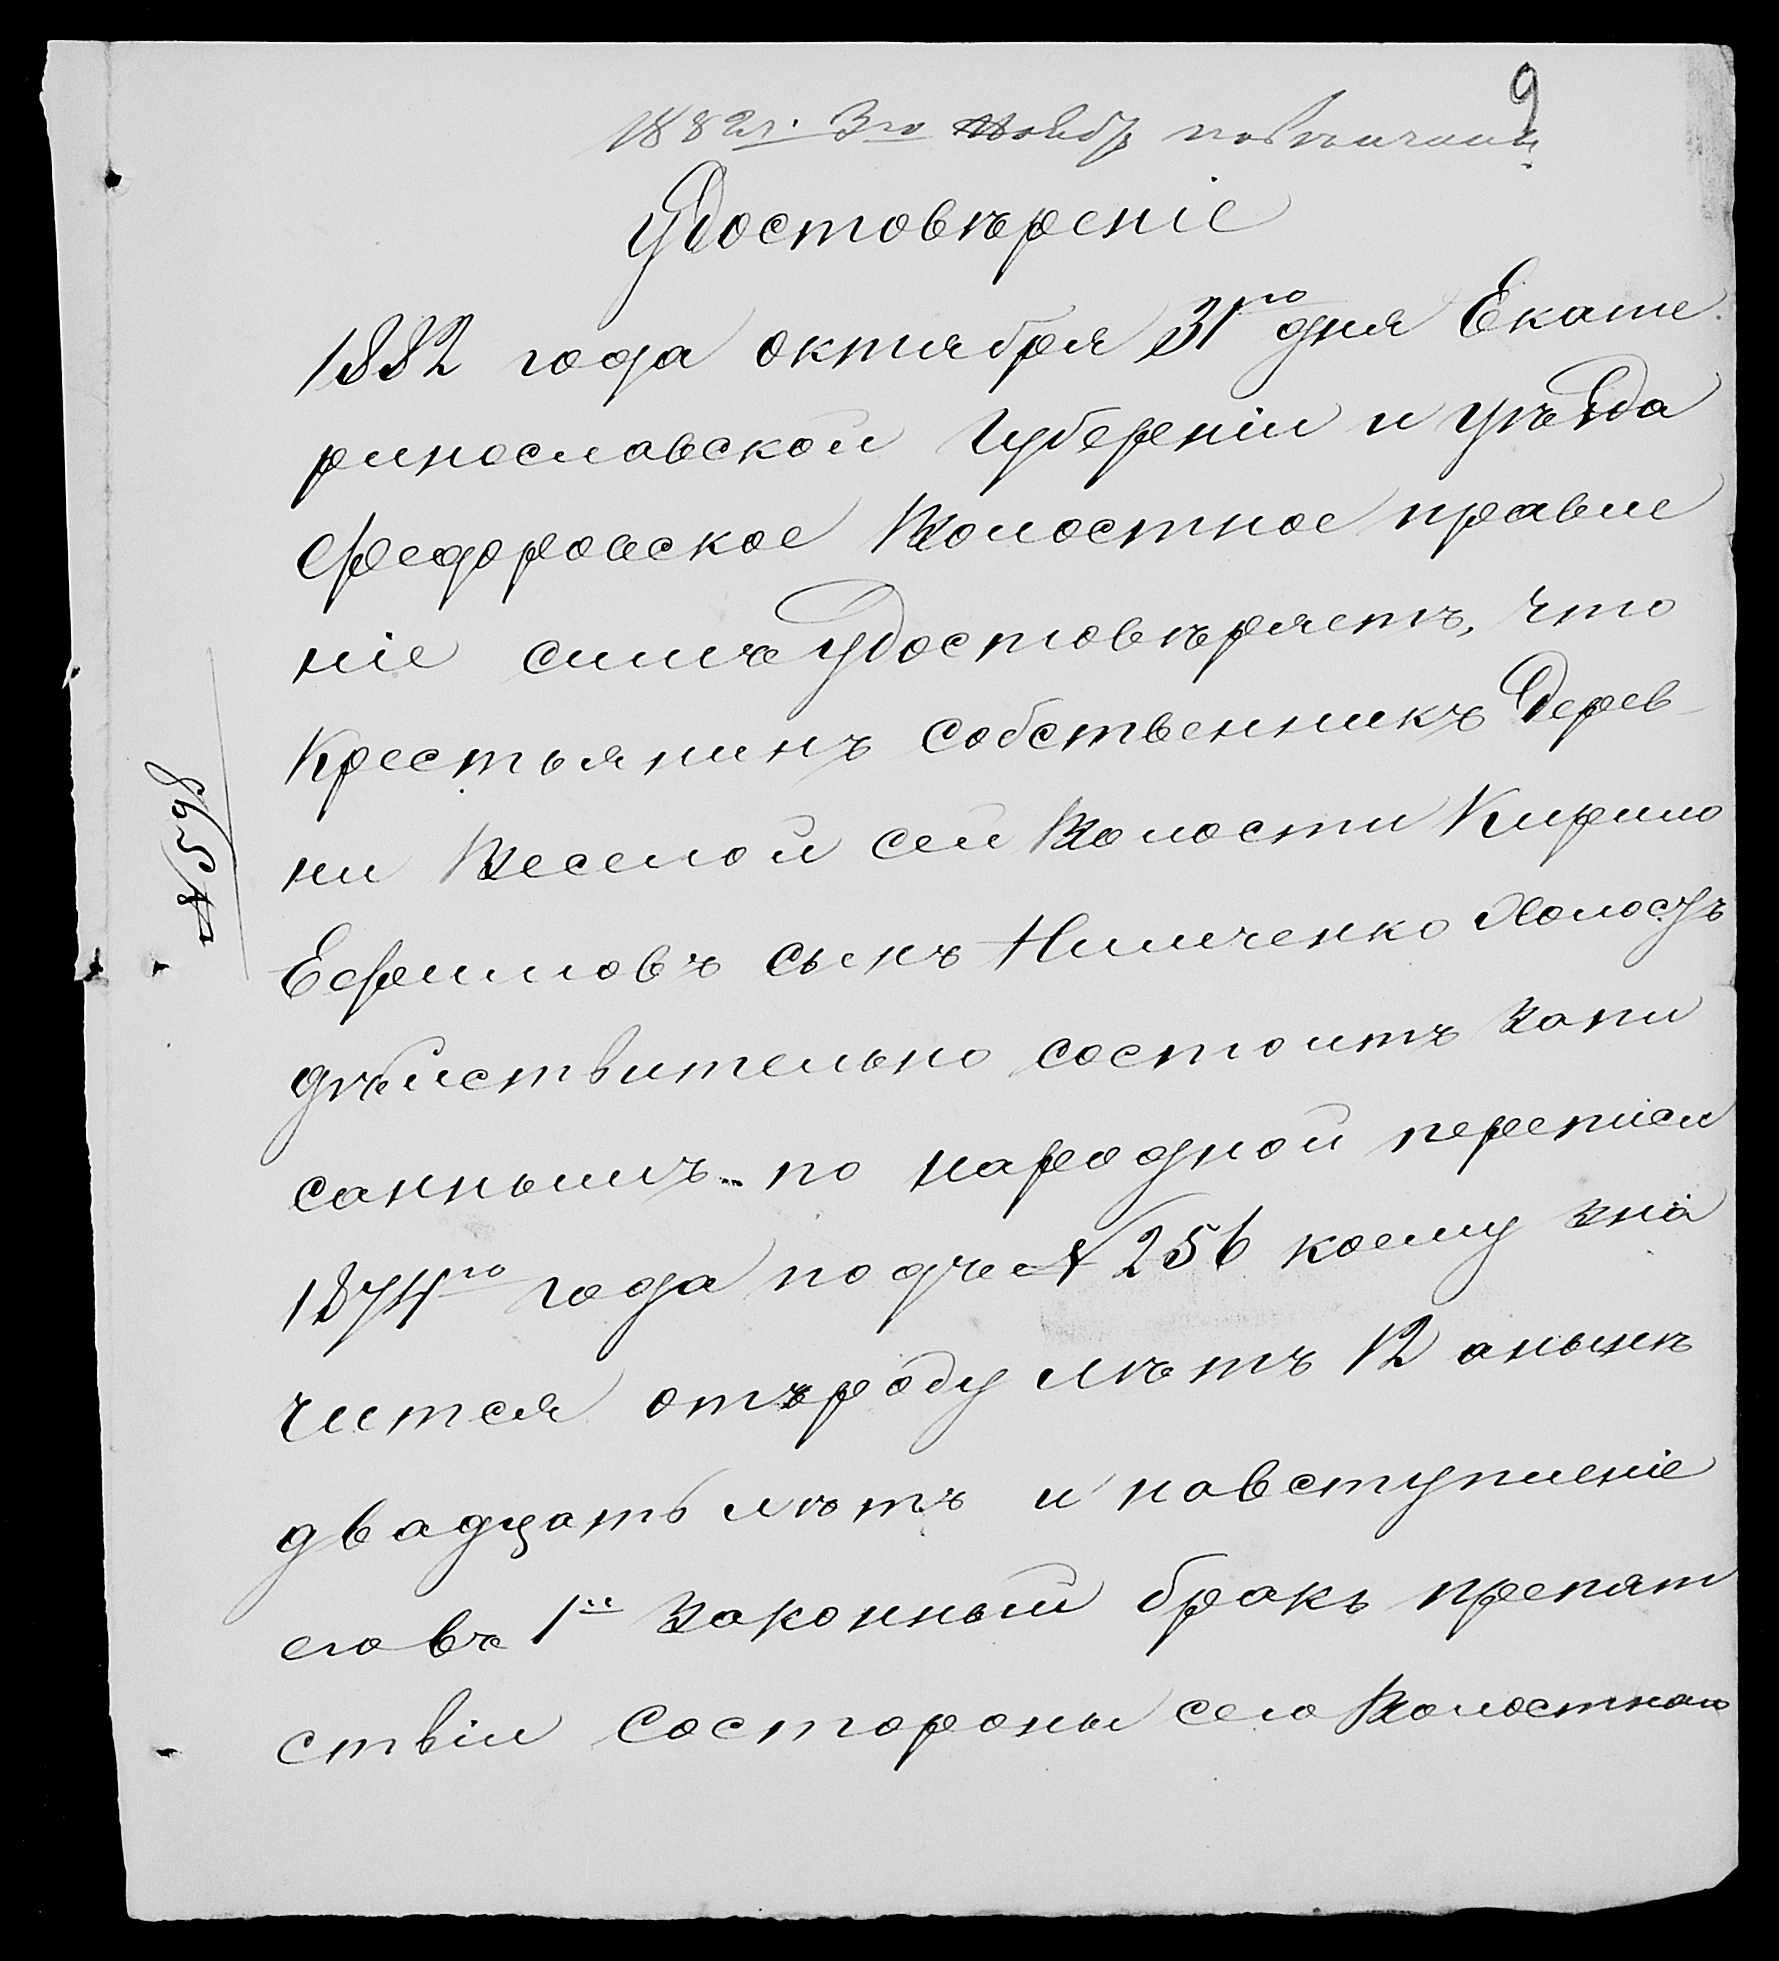 9
1882 г. 3го Ноября повѣнчаны
Удостовѣреніе
1882 года октября 31го дня Екате
ринославской Губерніи и уѣзда
Федоровское Волостное правле
ніе симъ удостовѣряетъ, что
Крестьянинъ собственникъ Дерев
ни Веселой сей Волости Кирило
Ефимовъ сынъ Нимченко Холостъ
дѣйствительно состоитъ запи
саннымъ по народной переписи
1874го года подъ № 256 коему зна
чится отъ роду лѣтъ 12 а нынѣ
двадцать лѣтъ и на вступленіе
его въ 1й законный бракъ препят
ствіи состороны сего Волостнаго
№ 598